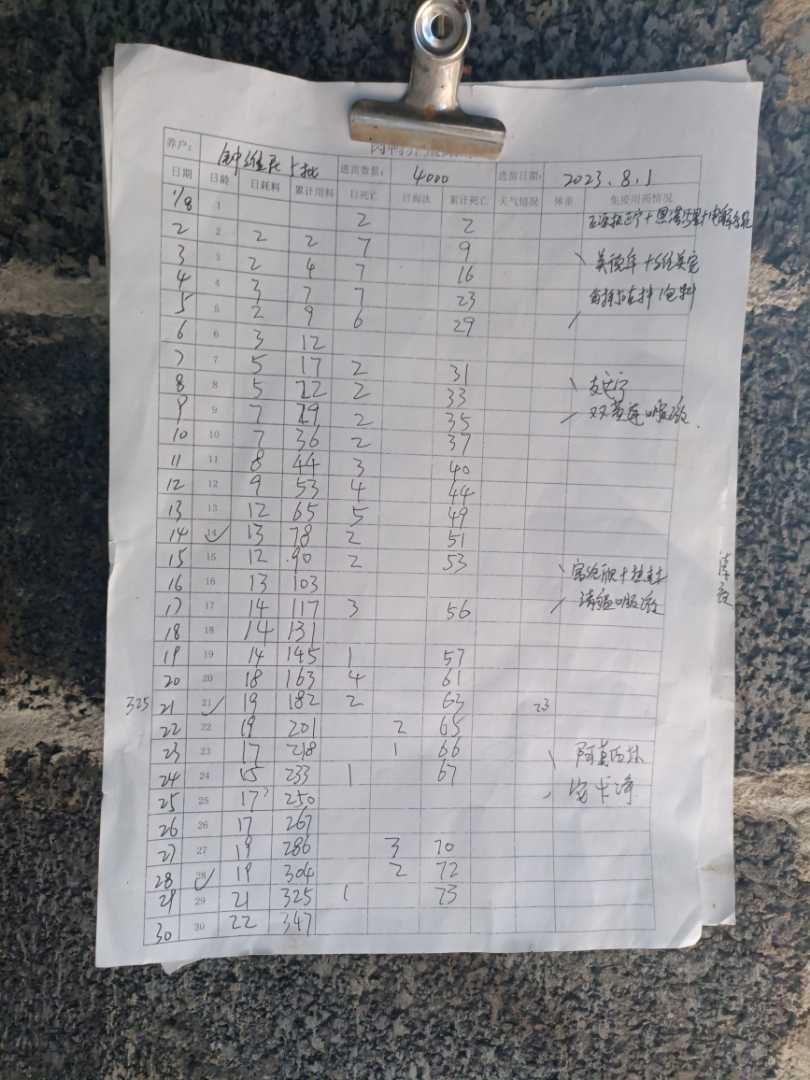 养户： 钟维 5批 进苗数量： 4000 进苗日期： 2023.8.1
日期 日龄 日耗料 累计用料 日死亡 日淘汰 累计死亡 天气情况 体重 免疫用药情况
1/8 1 2 2
2 2 2 2 7 9
3 3 2 4 7 16
4 4 3 7 7 23
5 5 2 9 6 29
6 6 3 12
7 7 5 17 2 31
8 8 5 22 2 33
9 9 7 29 2 35 双黄连口服液
10 10 7 36 2 37
11 11 8 44 3 40
12 12 9 53 4 44
13 13 12 65 5 49
14 14 ✓ 13 78 2 51
15 15 12 90 2 53
16 16 13 103
17 17 14 117 3 56 口服液
18 18 14 131
19 19 14 145 1 57
20 20 18 163 4 61
325 21 21 ✓ 19 182 2 63 23
22 22 19 201 2 65
23 23 17 218 1 66 阿莫西林
24 24 15 233 1 67
25 25 17 250
26 26 17 267
27 27 19 286 3 70
28 28 ✓ 19 304 2 72
29 29 21 325 1 73
30 30 22 347